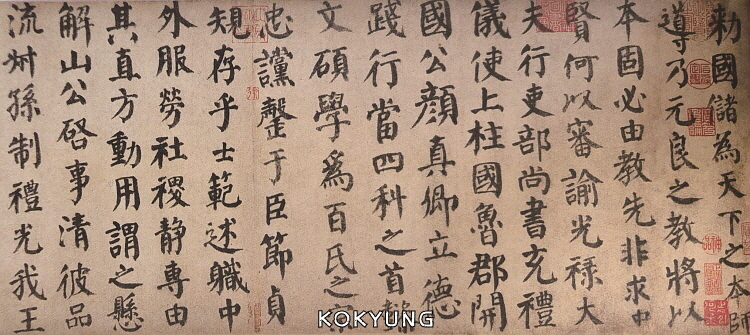 勅國儲為天下之本師
導乃元良之教將以
本固必由教先非求中
賢何以審諭光祿大
夫行吏部尚書充禮
儀使上柱國魯郡開
國公顏真卿立德
踐行當四科之首
文碩學為百氏之
忠讜罄于臣節貞
規存乎士範述職中
外服勞社稷靜專由
其直方動用謂之懸
解山公啓事清彼品
流叔孫制禮光我王
KOKYUNG